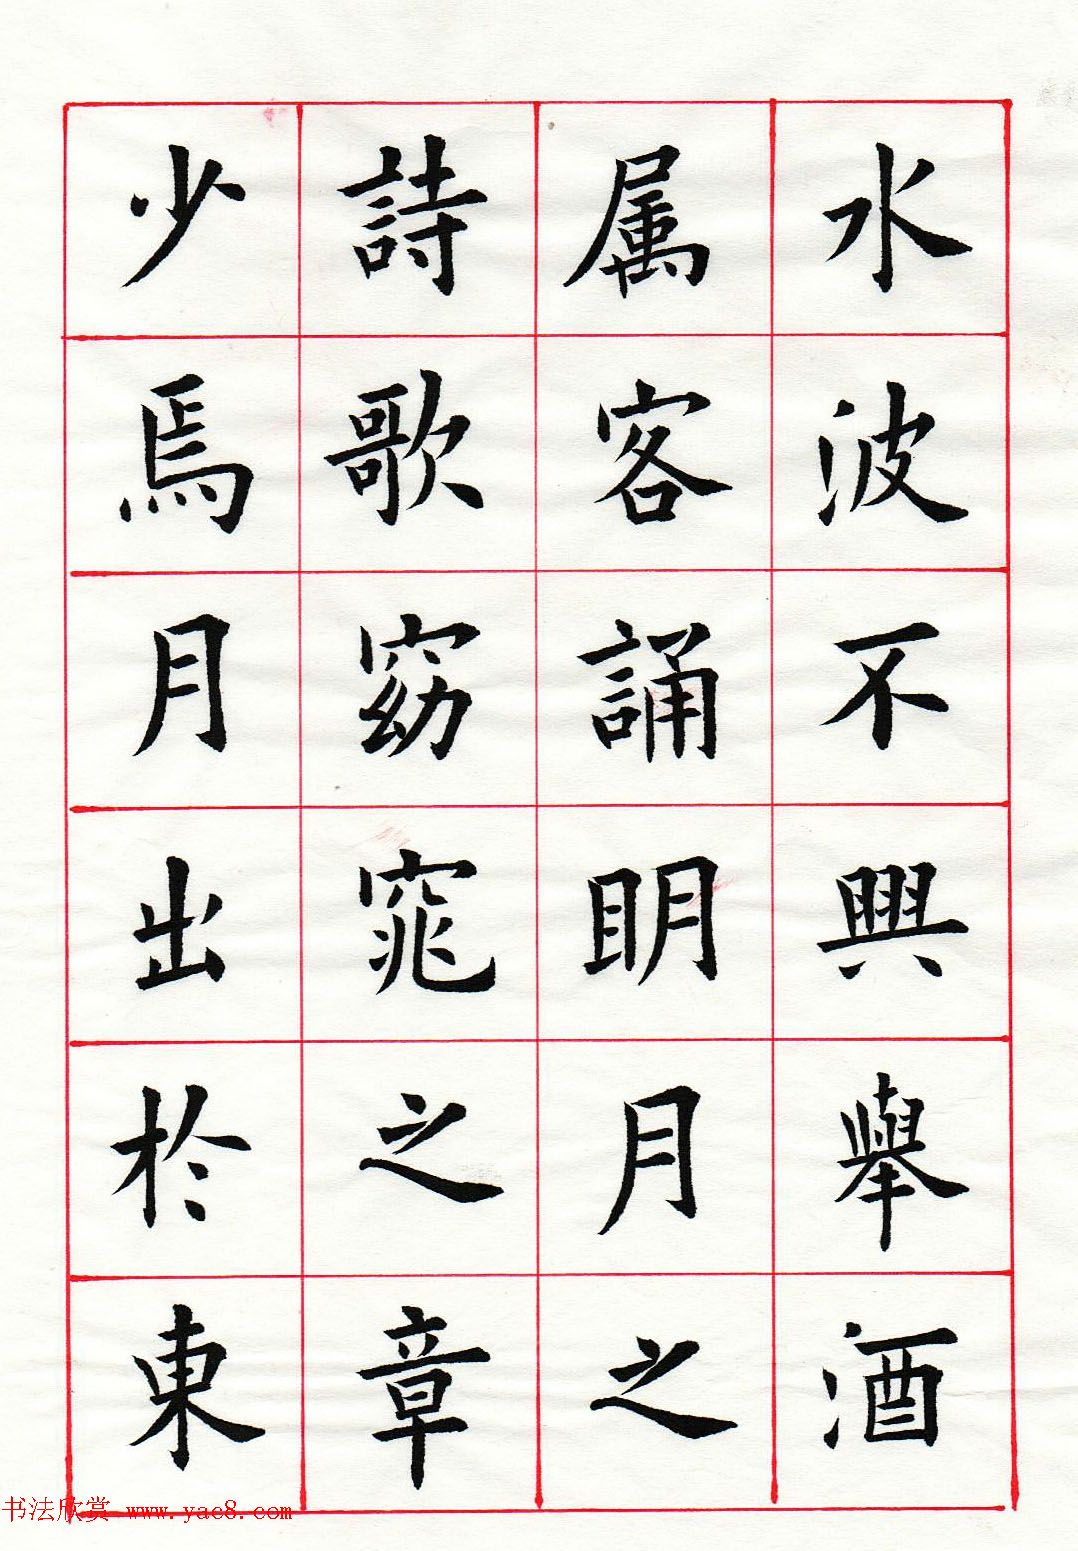 水波不興舉酒
属客誦眀月之
詩歌窈窕之章
少焉月出於東
书法欣赏 www.yac8.com